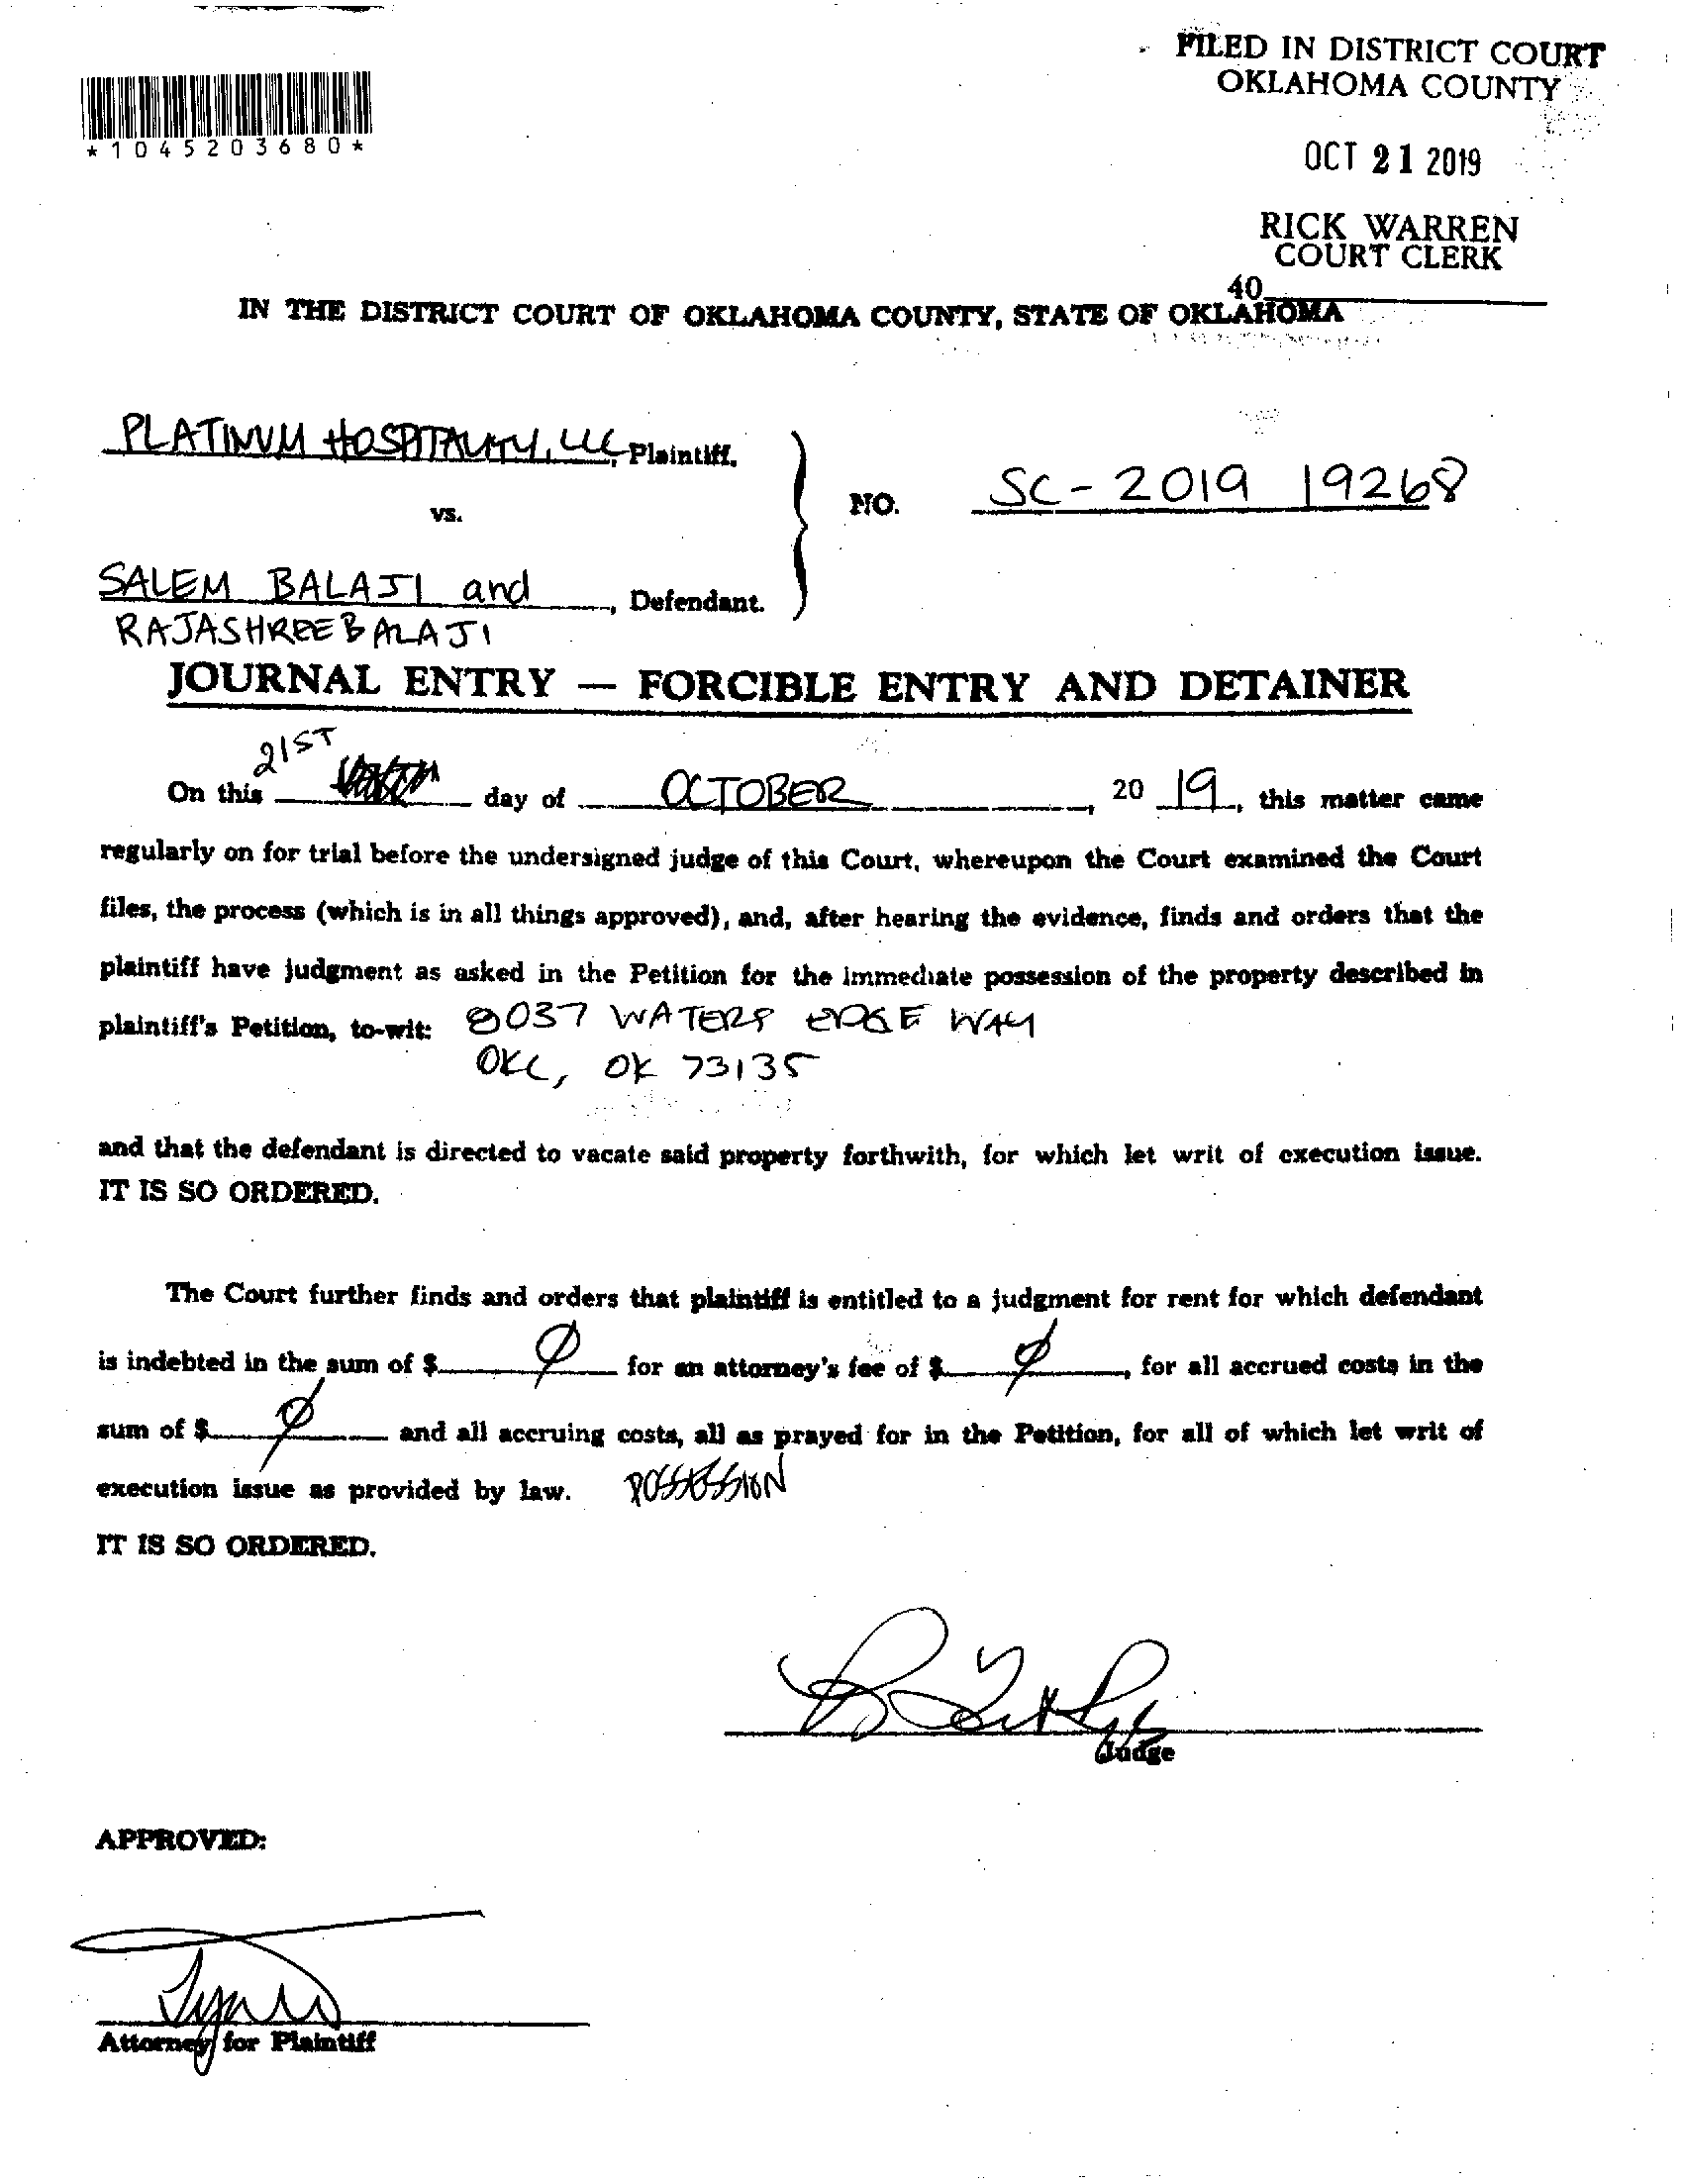 FILED IN DISTRICT COURT
OKLAHOMA COUNTY
*1045203680*
OCT 21 2019
RICK WARREN
COURT CLERK
40
IN THE DISTRICT COURT OF OKLAHOMA COUNTY, STATE OF OKLAHOMA
PLATINUM HOSPITALITY, LLC, Plaintiff,
vs.
NO. SC-2019 19268
SALEM BALAJI and, Defendant.
RAJASHREE BALAJI
JOURNAL ENTRY — FORCIBLE ENTRY AND DETAINER
On this 21ST day of OCTOBER, 20 19, this matter came
regularly on for trial before the undersigned judge of this Court, whereupon the Court examined the Court
files, the process (which is in all things approved), and, after hearing the evidence, finds and orders that the
plaintiff have judgment as asked in the Petition for the immediate possession of the property described in
plaintiff's Petition, to-wit: 8037 WATERS EDGE WAY
OKC, OK 73135
and that the defendant is directed to vacate said property forthwith, for which let writ of execution issue.
IT IS SO ORDERED.
The Court further finds and orders that plaintiff is entitled to a judgment for rent for which defendant
is indebted in the sum of $ Ø for an attorney's fee of $ Ø, for all accrued costs in the
sum of $ Ø and all accruing costs, all as prayed for in the Petition, for all of which let writ of
execution issue as provided by law. POSSESSION
IT IS SO ORDERED.
Judge
APPROVED:
Attorney for Plaintiff